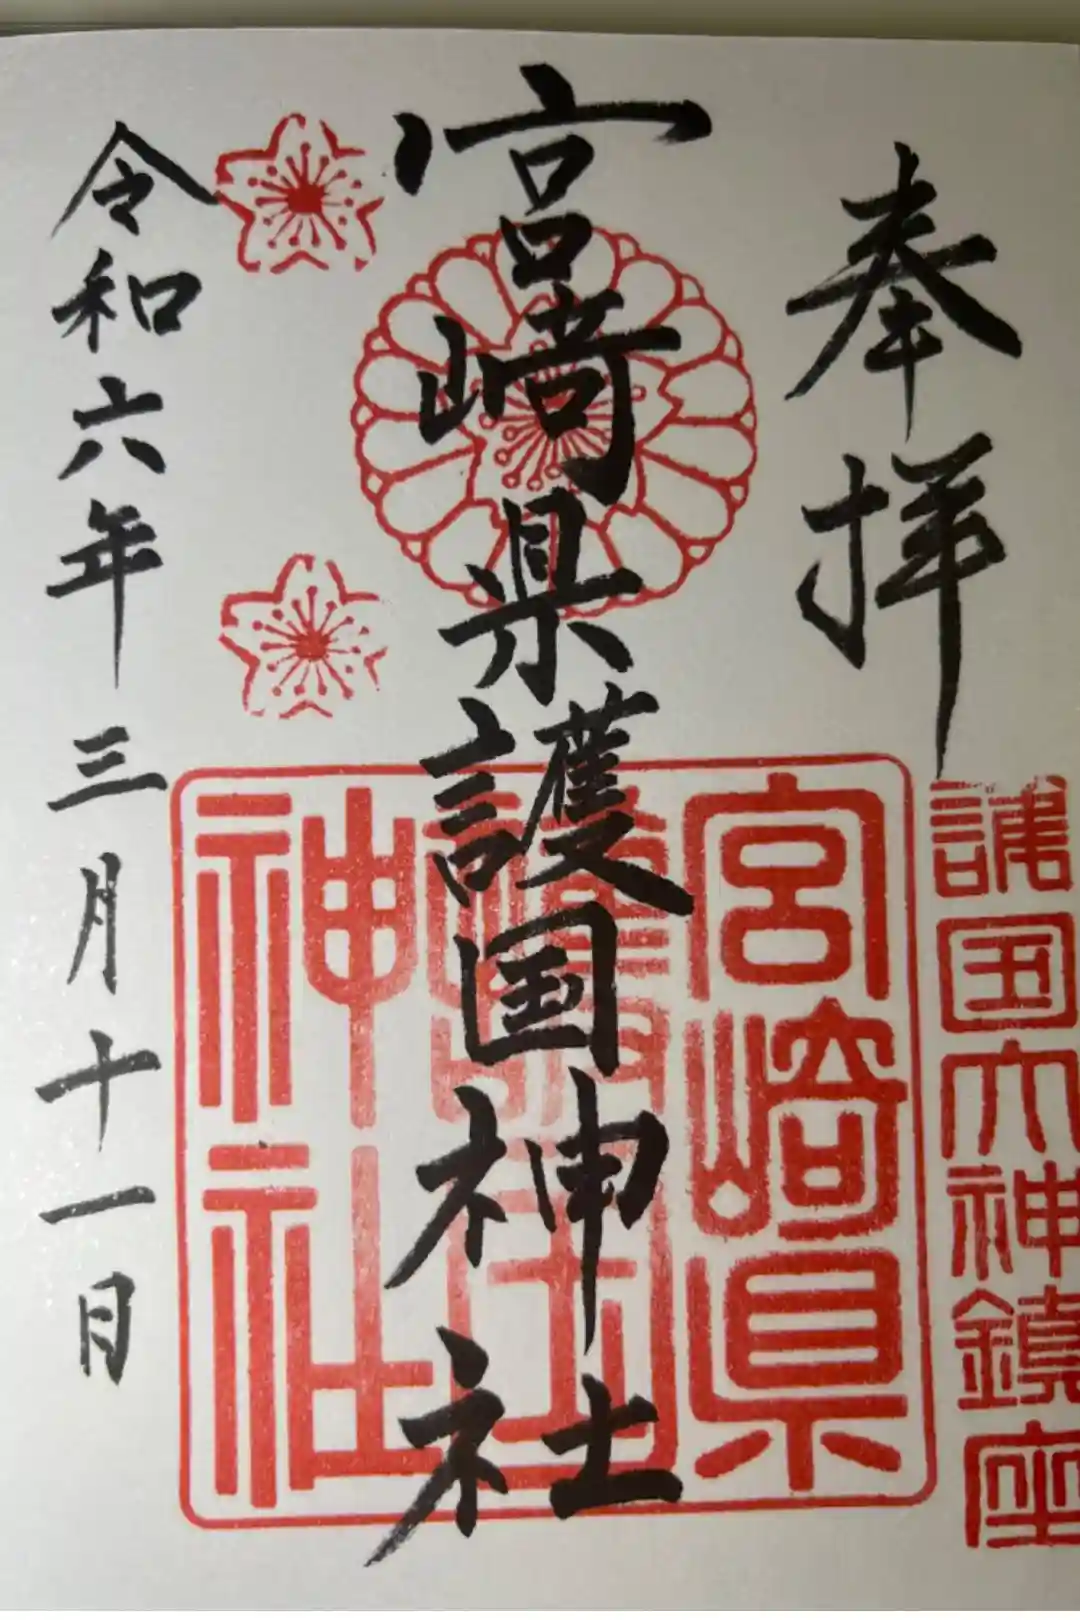 奉拝
護国大神鎮座
宮崎県護国神社
宮崎県
神社
令和六年三月十一日